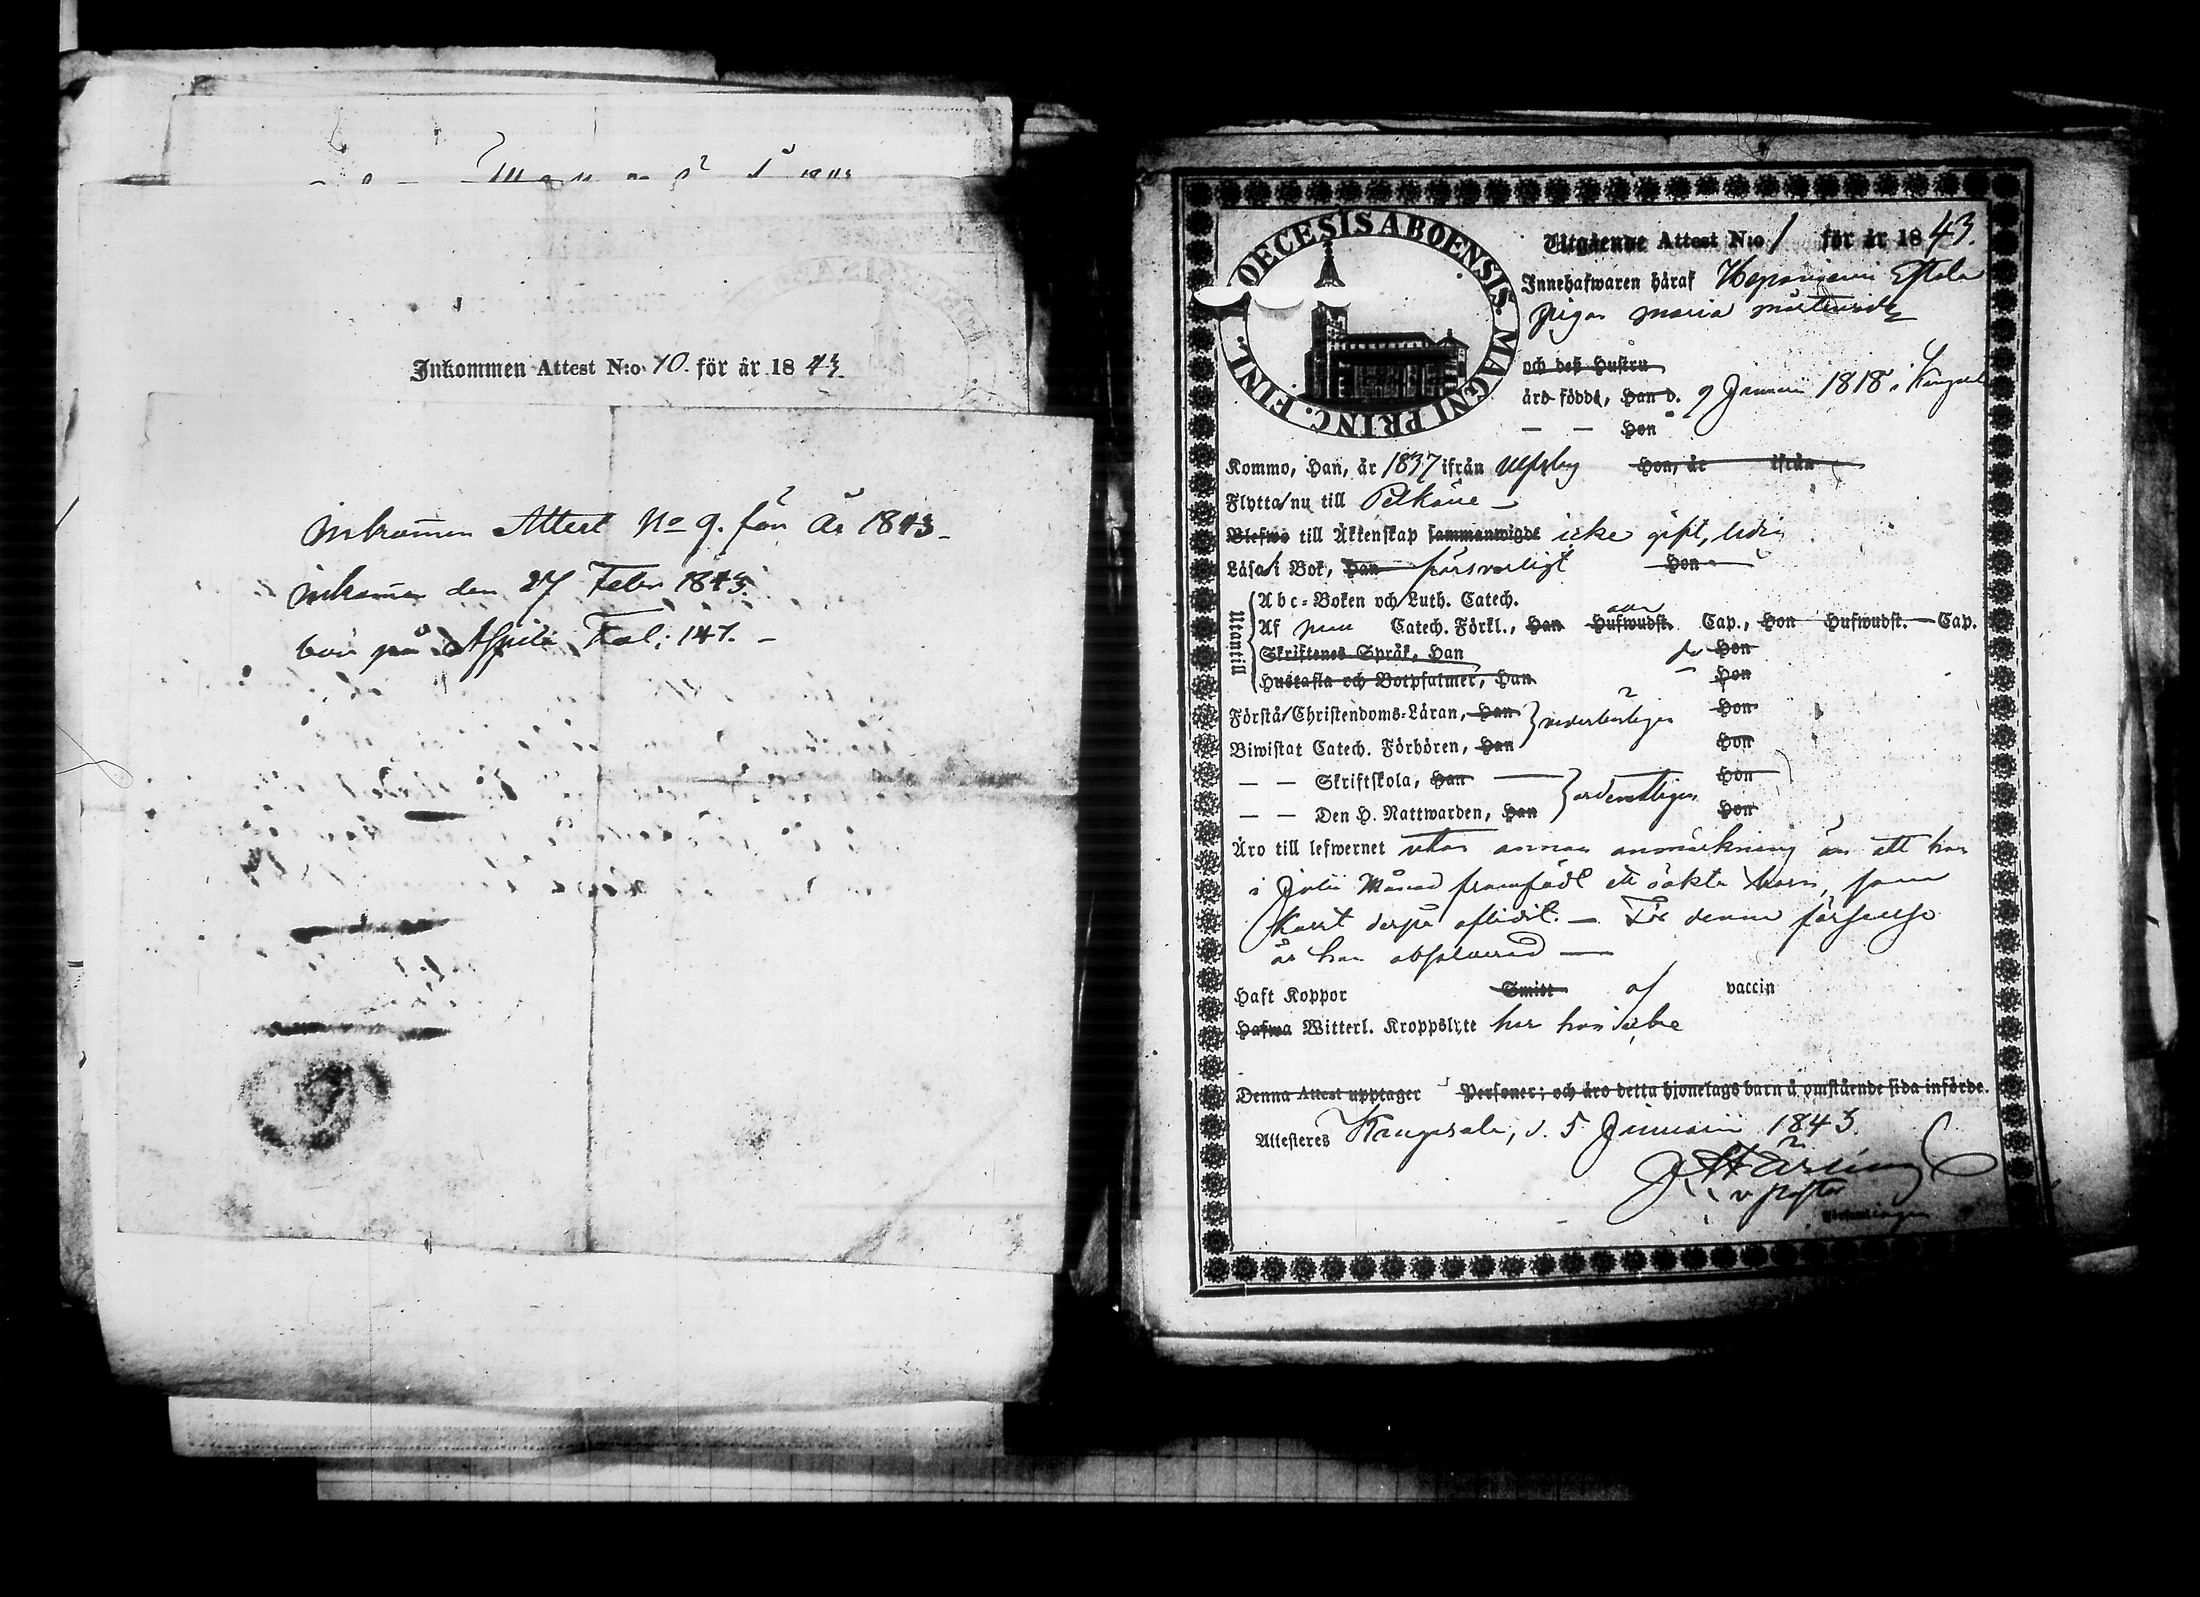 Inkommen Attest N:o 10. för år 1843.
Inkommen Attest No 9. för År 1843_
Inkommen den 27 Febr 1843.
bor på Fol: 147. _
DIOECESIS ABOENSIS. MAGNI PRINC. FINL.
Utgående Attest N:o 1 för år 1843.
Innehafwaren häraf
pigan Maria
och deß Hustru
äro födde, Han d. 9 Januari 1818 i
— — Hon
Kommo, Han, år 1837 ifrån Hon, år ifrån
Flytta/nu till Pelkäne _
Blefwo till Äktenskap sammanwigde icke gift, ledig
Läsa/i Bok, Han försvarligt Hon
Utantill
Abc-Boken och Luth. Catech.
Af Catech. Förkl., Han Hufwudst. Cap., Hon Hufwudst. Cap.
Skriftenes Språk, Han Hon
Hustafla och Botpsalmer, Han Hon
Förstå/Christendoms-Läran, Han Hon
Biwistat Catech. Förhören, Han Hon
— — Skriftskola, Han Hon
— — Den H. Nattwarden, Han ordentligen Hon
Äro till lefwernet utan annan anmärkning än att hon
i Julii Månad framfödt ett oäkta barn, som
kort derpå aflidit. — För denna förseelse
är hon absolverad —
Haft Koppor Smitt af vaccin
Hafwa Witterl. Kroppslyte har hon icke
Denna Attest upptager Personer; och äro detta hjonelags barn å omstående sida införde.
Attesteres Kangasala, d. 5 Januari 1843.
v. Pastor